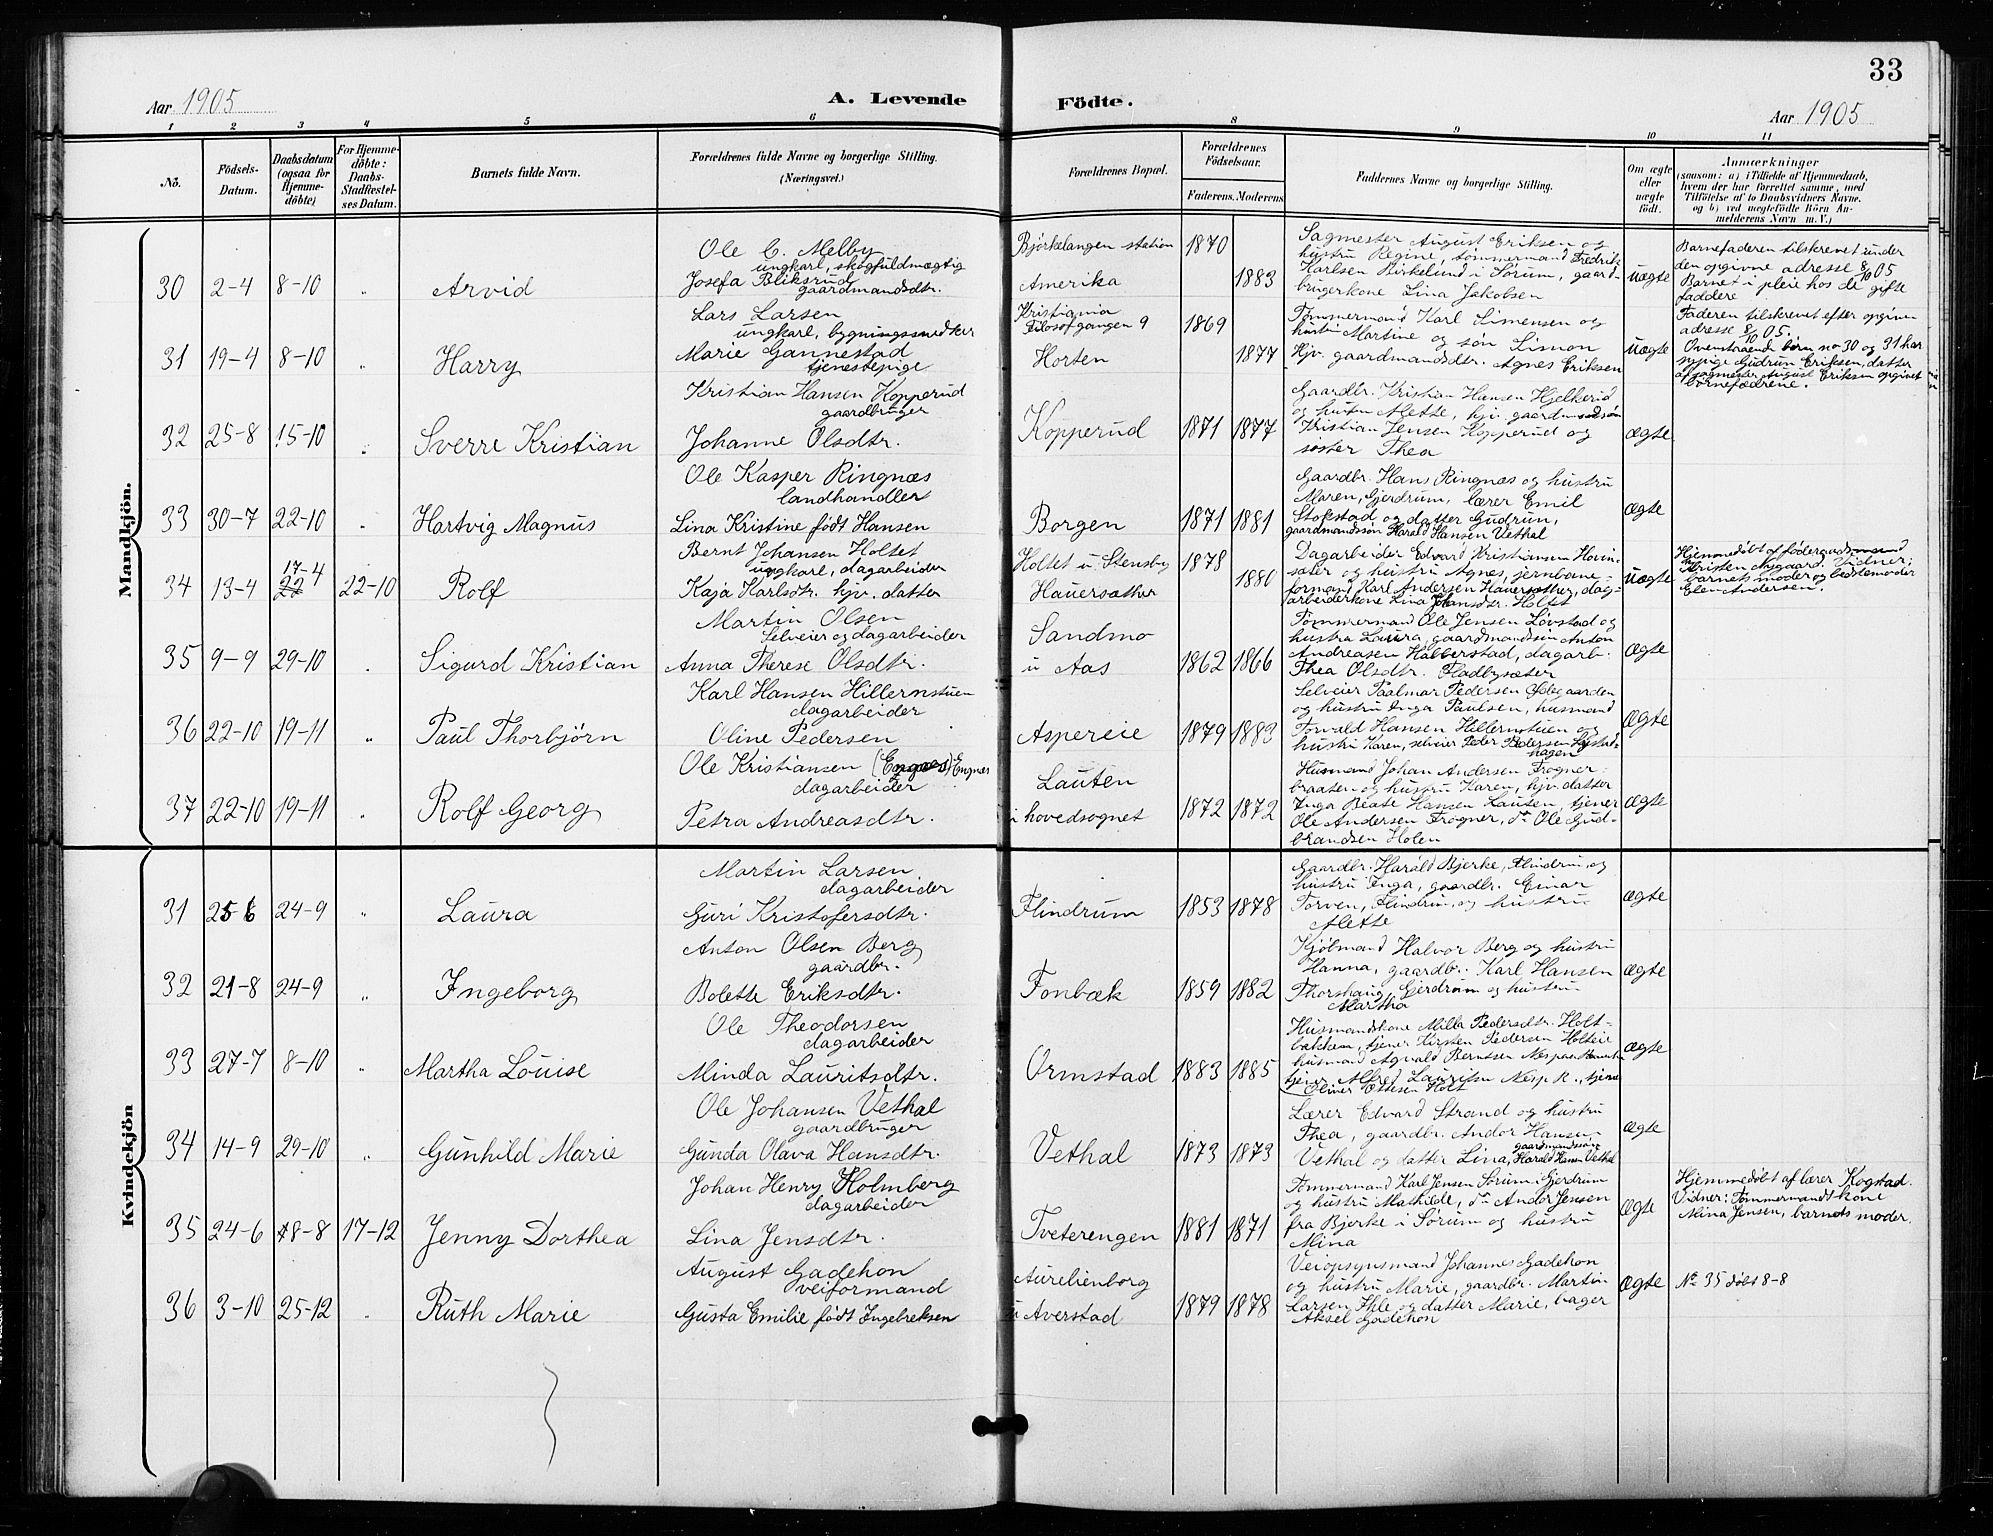 33
Aar 1905
A. Levende Födte.
Aar 1905
1 2 3 4 5 6 8 9 10 11
No.
Födsels-Datum.
Daabsdatum (ogsaa for Hjemme-döbte)
For Hjemme-döbte: Daabs-Stadfæstel-ses Datum.
Barnets fulde Navn.
Forældrenes fulde Navne og borgerlige Stilling. (Næringsvei.)
Forældrenes Bopæl.
Forældrenes Födselsaar.
Faderens. Moderens.
Faddernes Navne og borgerlige Stilling.
Om ægte eller uægte födt.
Anmærkninger
(saasom: a) i Tilfælde af Hjemmedaab,
hvem der har forrettet samme, med
Tilföielse af to Daabsvidners Navne.
og b) ved uægtefödte Börn An-
melderens Navn m. V.)
Mandkjön.
30 2-4 8-10 " Arvid
Ole C. Melby
ungkarl, skogfuldmægtig
Josefa Bliksrud
gaardmandsdtr.
Bjørkelangen station 1870
Amerika 1883
Sagmester August Eriksen og
hustru Regine, tømmermand Fredrik
Karlsen Birkelund i Sørum, gaard-
brugerkone Lina Jakobsen
uægte
Barnefaderen tilskrevet under
den opgivne adresse 8/10 05
Barnet i pleie hos de gifte
faddere
31 19-4 8-10 " Harry
Lars Larsen
ungkarl, bygningssnedker
Marie Gannestad
tjenestepige
Kristiania
Filosofgangen 9 1869
Horten 1877
Tømmermand Karl Simensen og
hustru Martine og søn Simon
Hjv. gaardmandsdr. Agnes Eriksen
uægte
Faderen tilskrevet efter opgiven
adresse 8/10 05.
Ovenstaaende børn no 30 og 31 har
sypige Gudrun Eriksen, datter
af sagmester August Eriksen opgivet
barnefædrene.
32 25-8 15-10 " Sverre Kristian
Kristian Hansen Kopperud
gaardbruger
Johanne Olsdtr.
Kopperud 1871 1877
Gaardbr. Kristian Hansen Hjelkerud
og hustru Mette, hjv. gaardmandssøn
Kristian Jensen Kopperud og
søster Thea
ægte
33 30-7 22-10 " Hartvig Magnus
Ole Kasper Ringnæs
landhandler
Lina Kristine født Hansen
Borgen 1871 1881
Gaardbr. Hans Ringnæs og hustru
Maren, Gjerdrum, lærer Emil
Stokstad og datter Gudrun,
gaardmandssøn Harald Hansen Vethal
ægte
34 13-4 17-4 22-10 Rolf
Bernt Johansen Holtet
ungkarl, dagarbeider
Kaja Karlsdtr. hjv. datter
Holtet u. Stensby 1878
Hauersæther 1880
Dagarbeider Edvard Kristiansen Hovin-
sæter og hustru Agnes, jernbane-
formand Karl Andersen Hauersæther, dag-
arbeiderkone Lina Johansdtr. Holtet
uægte
Hjemmedøbt af
Kristen Nygaard. Vidner:
barnets moder og bedstemoder
Elen Andersen.
35 9-9 29-10 " Sigurd Kristian
Martin Olsen
Selveier og dagarbeider
Anna Therese Olsdtr.
Sandmo
u Aas 1862 1866
Tømmermand Ole Jensen Løvstad og
hustru Laura, gaardmandssøn Anton
Andreasen Halberstad, dagarb.
Thea Olsdtr. Fladbysæter
ægte
36 22-10 19-11 " Paul Thorbjörn
Karl Hansen Hillernstuen
dagarbeider
Oline Pedersen
Aspereie 1879 1882
Selveier Paalmar Pedersen Ødegaarden
og hustru Inga Paulsen, husmand
Torvald Hansen Hillernstuen og
hustru Karen, selveier Peder Pedersen
hagen
ægte
37 22-10 19-11 " Rolf Georg
Ole Kristiansen (Engnes) Engnæs
dagarbeider
Petra Andreasdtr.
Lauten
i hovedsognet 1872 1872
Husmand Johan Andersen Frogner-
braaten og hustru Karen, hjv. datter
Inga Beate Hansen Lauten, tjener
Ole Andersen Frogner, do Ole Gud-
brandsen Holen
ægte
Kvindekjön
31 25-6 24-9 " Laura
Martin Larsen
dagarbeider
Guri Kristofersdtr.
Flindrum 1853 1878
Gaardbr. Harald Bjerke, Flindrum, og
hustru Inga, gaardbr. Einar
Torven, Flindrum, og hustru
Mette
ægte
32 21-8 24-9 " Ingeborg
Anton Olsen Berg
gaardbr.
Bolette Eriksdtr.
Fonbæk 1859 1882
Kjølmand Halvor Berg og hustru
Hanna, gaardbr. Karl Hansen
Thorshaug, Gjerdrum og hustru
Martha
ægte
33 27-7 8-10 " Martha Louise
Ole Theodorsen
dagarbeider
Minda Lauritsdtr.
Ormstad 1883 1885
Husmandskone Milla Pedersdtr. Holt-
bakken, tjener Kirsten Pedersen Holteie
husmand Agvald Berntsen
tjener Alfred Lauritsen , tjener
Oliner Ottesen Holt
ægte
34 14-9 29-10 " Gunhild Marie
Ole Johansen Vethal
gaardbruger
Gunda Olava Hansdtr.
Vethal 1873 1873
Lærer Edvard Strand og hustru
Thea, gaardbr. Andor Hansen
Vethal og datter Lina, gaardmandssøn Harald Hansen Vethal
ægte
35 24-6 8-8 17-12 Jenny Dorthea
Johan Henry Holmberg
dagarbeider
Lina Jensdtr.
Tveterengen 1881 1871
Tømmermand Karl Jensen Sørum i Gjerdrum
og hustru Mathilde, do Andor Jensen
fra Bjerke i Sørum og hustru
Mina
ægte
Hjemmedøbt af lærer Kogstad.
Vidner: Tømmermandskone
Mina Jensen, barnets moder.
36 3-10 25-12 " Ruth Marie
August Gadehon
veiformand
Gusta Emilie født Ingebreksen
Aurelienborg
u Averstad 1879 1878
Veiopsynsmand Johannes Gadehon
og hustru Marie, gaardbr. Martin
Larsen Ihle og datter Marie, bager
Aksel Gadehon
ægte
No 35 døbt 8-8